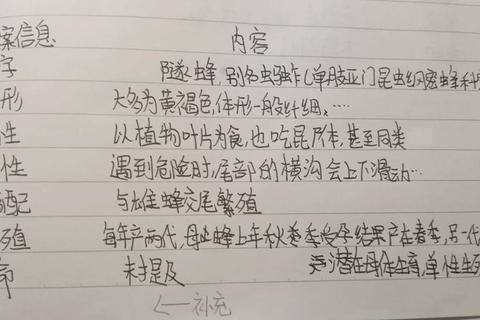 案信息 内容
字 隧蜂,别名虫骚作(单肢亚门昆虫纲蜜蜂科
形 大多为黄褐色,体形一般纤细。…
性 以植物叶片为食,也吃昆尸体,甚至同类
性 遇到危险时,尾部的横沟会上下滑动…
配 与雄蜂交尾繁殖
殖 每年产两代,母蜂上年秋季受孕结果产在春季,另一代
未提及 潜在母体生育,单性生
<——补充